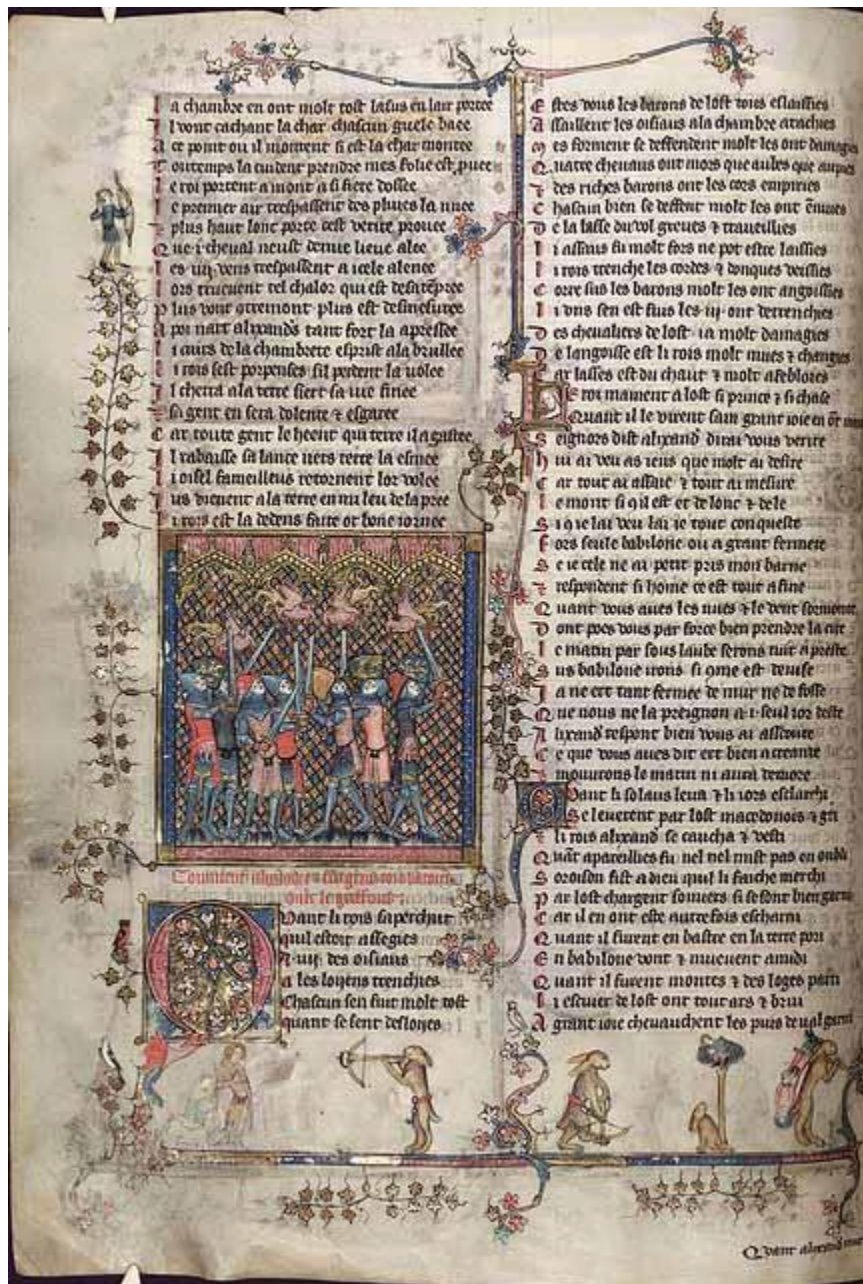 L a chambre en ont molt tost lasus en lair portee
I l vont cachant la char chascun guele baee
A ce point ou il montent si est la char montee
T outemps la cuident prendre mes folie est
L e roi portent amont a si fiere
L e premier air trespassent des pluies la nuee
plus haut lont porte cest verite provee
Q ue .i. cheval neust demie lieue alee
L es .iiii. vens trespassent a icele alenee
L ors truevent tel chalor qui est
P lus vont contremont plus est desmesuree
A poi nart tant fort la apressee
L i cuirs de la chambrete esprist a la brullee
L i rois sest porpenses sil perdent la volee
I l cherra a la terre siert sa vie finee
si gent en sera dolente & esgaree
C ar toute gent le heent qui terre il a gastee
I l rabaisse sa lance vers terre la
L i oisel fameilleus retornent lor volee
I us vienent a la terre en mi leu de la pree
L i rois est la dedens faite ot bone iornee
Coument
Quant li rois saperchut
quil estoit assegies
des oisiaus
a les loiens trenchies
Chascun sen fuit molt tost
quant se sent desloies
E stes vous les barons de lost tous eslaissies
A ssaillent les oisiaus a la chambre ataches
M es forment se deffendent molt les ont damagies
Q uatre chevaus ont mors que
& des riches barons ont les cors empiries
C hascun bien se deffent molt les ont
D e la lasse du vol greves & traveillies
L i assaus fu molt fors ne pot estre laissies
L i rois trenche les cordes & donques veissies
C orre sus les barons molt les ont angoissies
L i uns sen est fuis les .iii. ont detrenchies
D es chevaliers de lost molt damagies
D e langoisse est li rois molt mues & changies
C ar lasses est du chaut & molt afeblores
L e roi mainent a lost si prince & si chase
Quant il le virent sain grant ioie en
S eignors dist alixand dirai vous verite
H ui ai veu as iens que molt ai desire
C ar tout ai assaie & tout ai mesure
L e mont si qil est et de lonc & de le
S i le lai veu lai ie tout conqueste
F ors seule babilone ou a grant fermete
S e ie cele ne ai petit pris mon barne
& respondent si home ce est tout afine
Q uant vous aves les nues & le vent sormonte
D ont poes vous par force bien prendre la cite
L e matin par sous laube serons tuit apreste
S us babilone irons si est devise
I a ne ert tant fermee de mur ne de fosse
Q ue nous ne la preignon a .i. seul ior deste
A lixand respont bien vous ai
C e que vous aves dit ert bien acreante
mouvrons le matin ni aura demore
Quant li solaus leva & li iors esclarchi
Se leverent par lost macedonois &
li rois alixand se caucha & vesti
Q uant apareillies fu nel mist pas en oubli
S oroison fist a dieu quil li faiche merchi
P ar lost chargent somiers si se sont bien garni
C ar il en ont este autrefois escharni
Q uant il furent en bastre en la terre pori
E n babilone vont & muevent amidi
Q uant il furent montes & des loges parti
L i escuier de lost ont tout ars & brui
A grant ioie chevauchent les puis de val garni
Quant